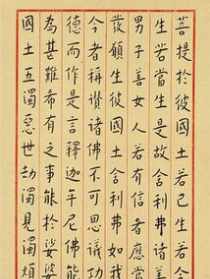 菩提於彼國土若已生若今
生若當生是故舍利弗諸善
男子善女人若有信者應當
發願生彼國土舍利弗如我
今者稱讚諸佛不可思議功
德而作是言釋迦牟尼佛能
為甚難希有之事能於娑婆
國土五濁惡世劫濁見濁煩